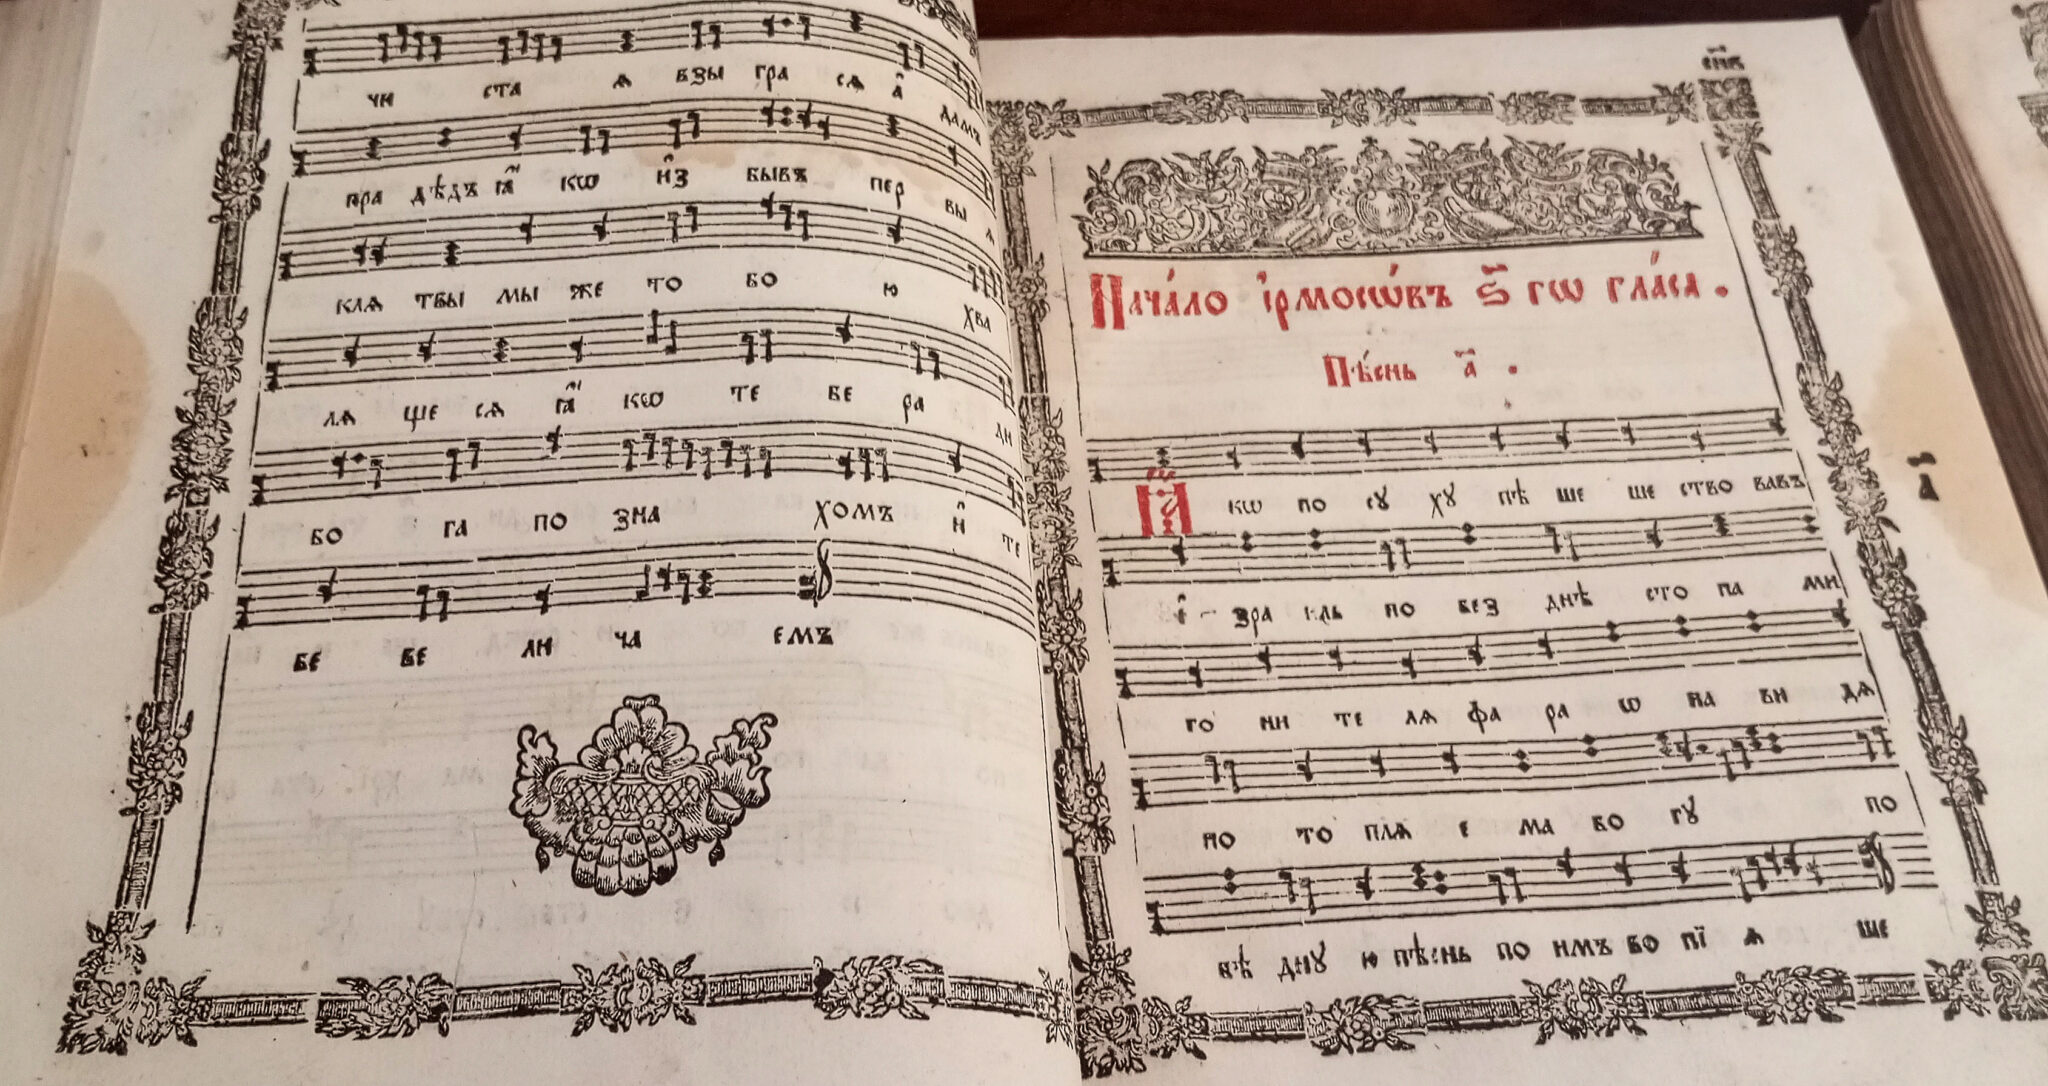 чи ста ѧ взы гра сѧ а҆ дамъ
пра дѣдъ ꙗ҆́ кѡ и҆з бывъ пер вы ѧ
клѧ твы мы же то бо ю хва
лѧ ще сѧ ꙗ҆́ кѡ те бе ра ди
бо га по зна хомъ и҆ те
бе ве ли ча емъ
сн҃в
Нача́ло і҆рмосѡ́въ ѕ҃ гѡ гла́са.
Пѣ́снь а҃.
Ꙗ҆́ кѡ по сꙋ хꙋ пѣ ше ше ство вавъ
і҆ - зра иль по без днѣ сто па ми
го ни те лѧ фа ра ѡ на ви дѧ
но то плѧ е ма бо гꙋ по
бѣ днꙋ ю пѣснь по имъ во пї ѧ ше
а҃